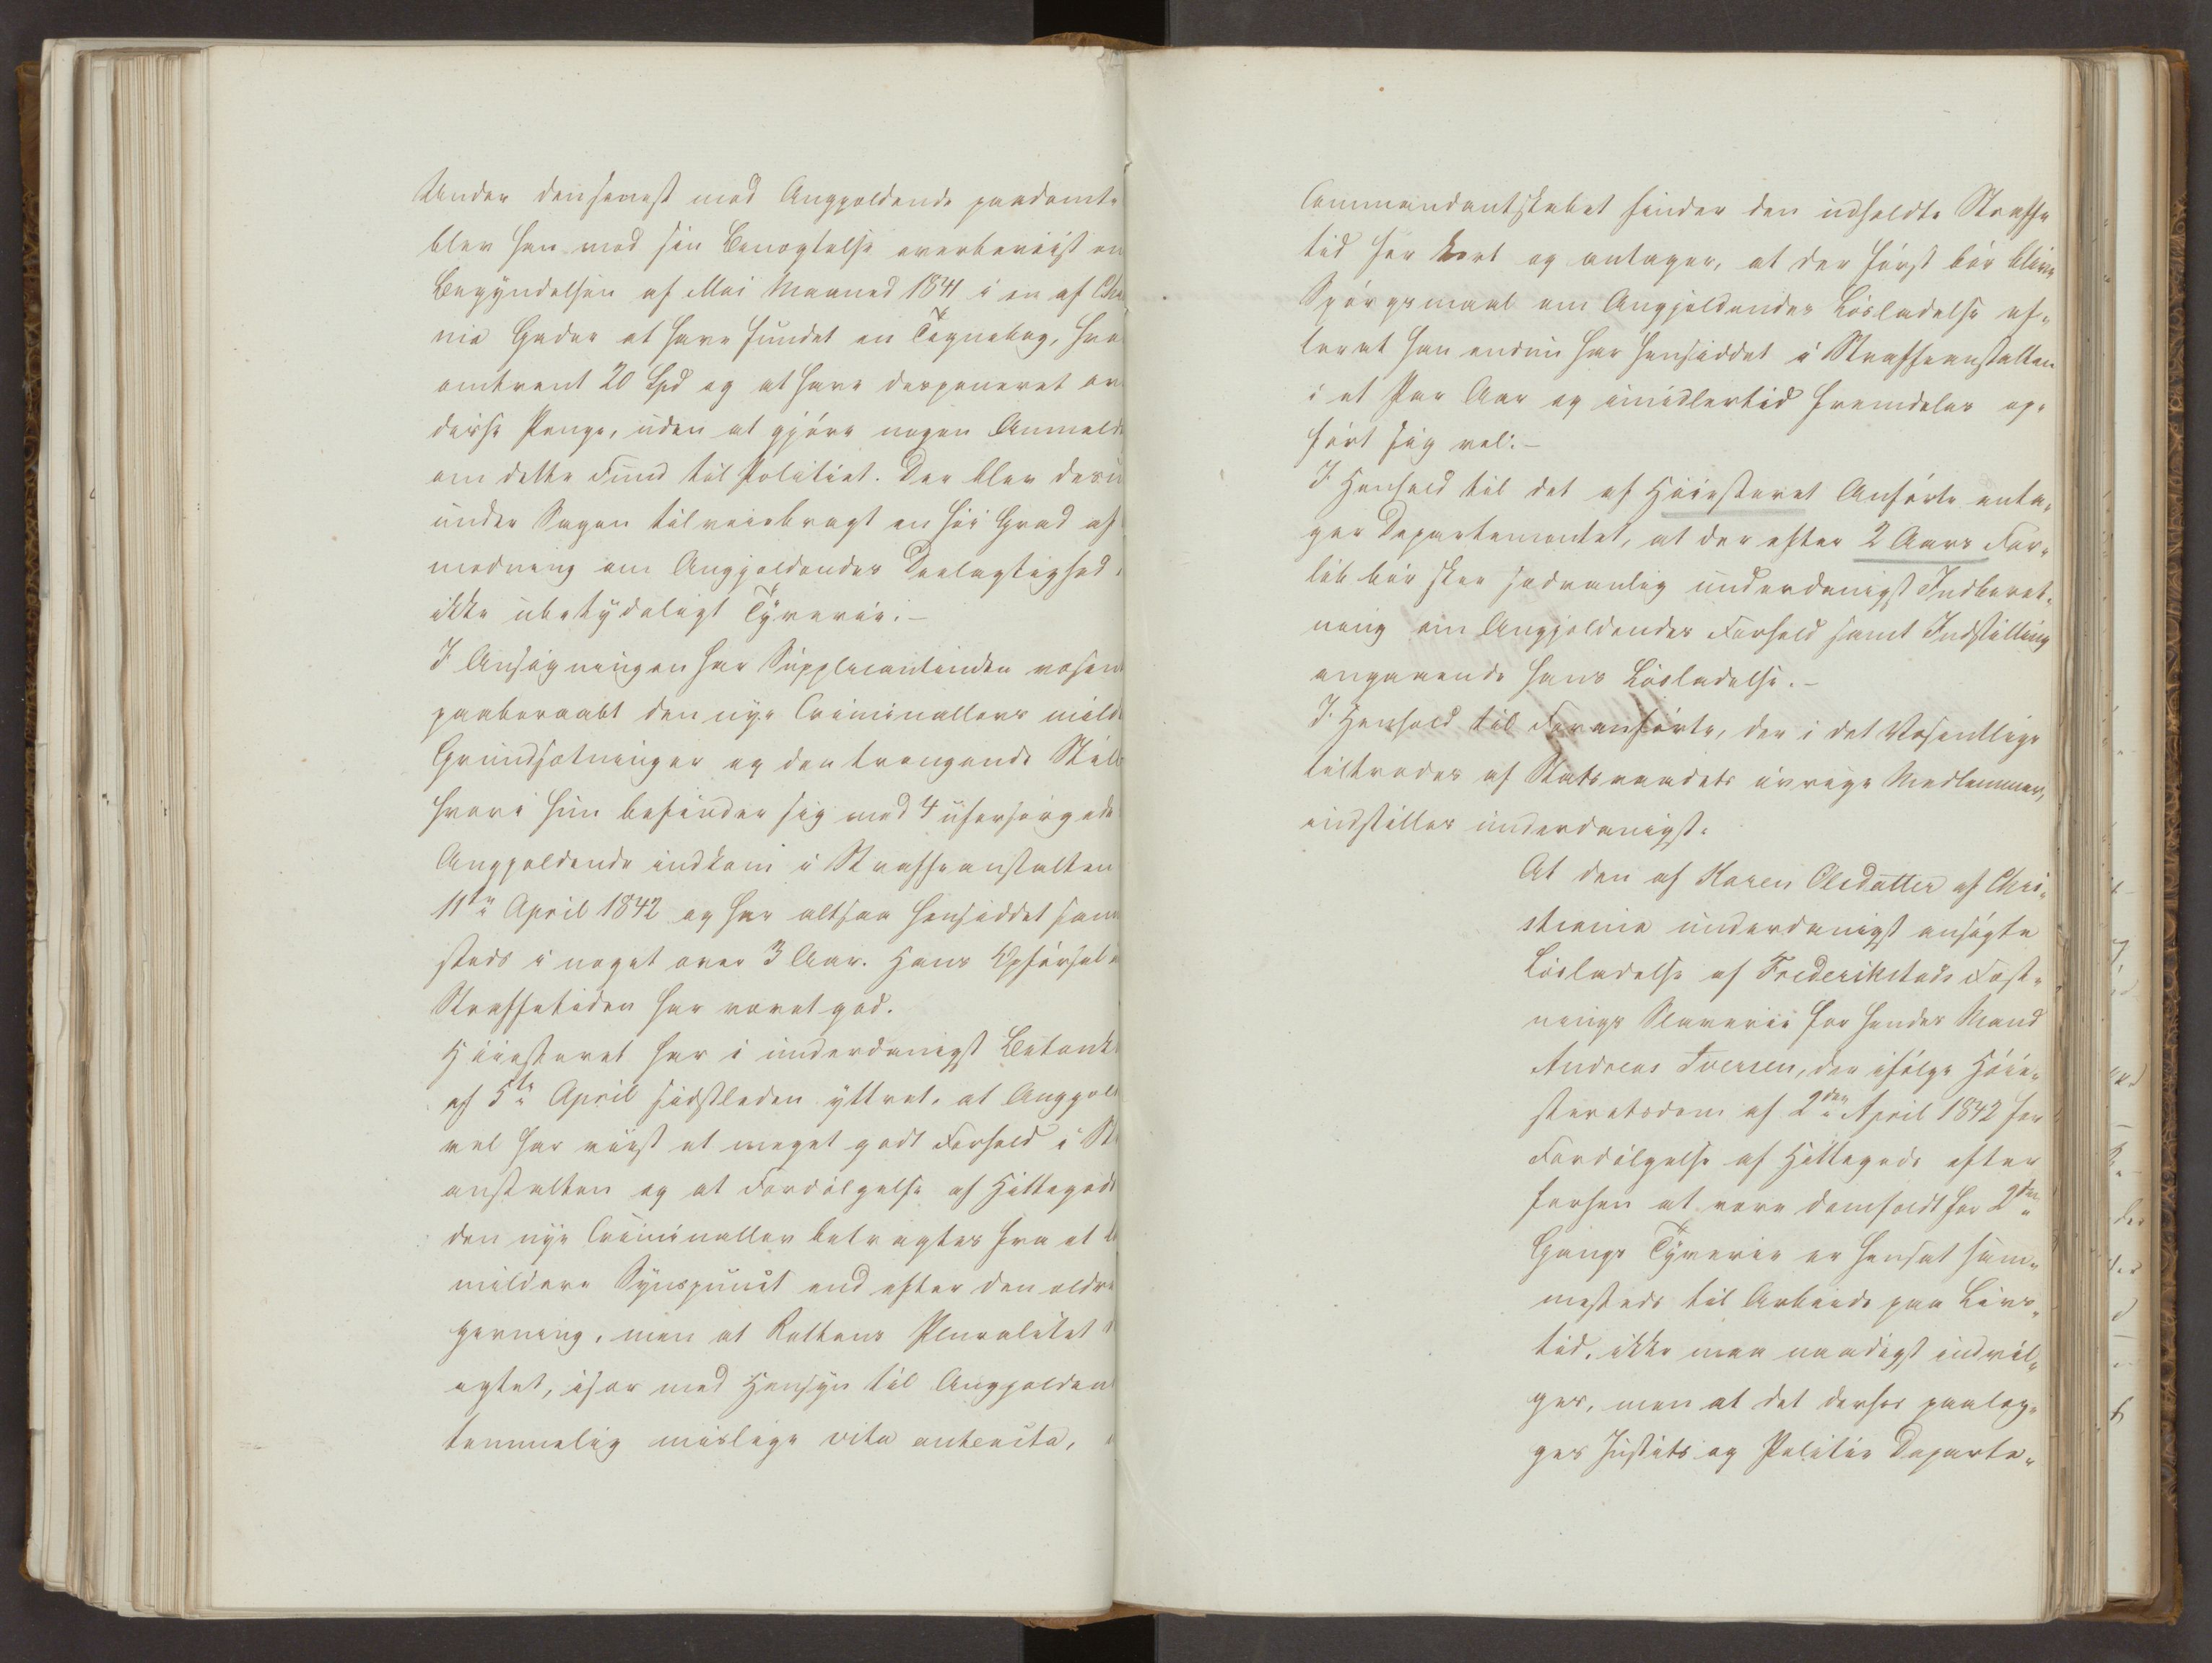 Under den senest mod Angjeldende paadømte
blev han mod sin Benægtelse overbeviist
Begyndelsen af Mai Maaned 1841 i en af Chr
nia Gader at have fundet en Tegnebog,
omtrent 20 Spd og at have desponeret over
disse Penge, uden at gjøre nogen Anmeld
om dette Fund til Politiet. Der blev des
under Sagen tilveiebragt en høi Grad af
modning om Angjeldendes Deelagtighed
ikke ubetydeligt Tyverie.-
I Ansøgningen har Supplicantinden
paaberaabt den nye Criminallovs milde
Grundsætninger og den trængende Still
hvori hun befinder sig med 4 uforsørgede
Angjeldende indkom i Straffeanstalten
11te April 1842 og har altsaa hensiddet sam
steds i noget over 3 Aar. Hans Opførsel
Straffetiden har været god.
Høiesteret har i underdanigst Betænk
af 5te April sidstleden yttret, at Angjeld
vel har viist et meget godt Forhold i St
anstalten og at Fordølgelse af Hittegods
den nye Criminallov betragtes fra et
mildere Synspunct end efter den ældre
givning, men at Rettens Pluralitet
agtet, især med Hensyn til Angjelden
temmelig mislige vita anteacta,
Commandantskabet finder den udholdte Straffe
tid for kort og antager, at der først bør blive
Spørgsmaal om Angjeldendes Løsladelse ef-
ter at han endnu har hensiddet i Straffeanstalten
i et Par Aar og imidlertid fremdeles op-
ført sig vel.-
I Henhold til det af Høiesteret Anførte anta-
ger Departementet, at der efter 2 Aars For-
løb bør skee sædvanlig underdanigst Indberet-
ning om Angjeldendes Forhold samt Indstilling
angaaende hans Løsladelse.-
I Henhold til Foranførte, der i det Væsentlige
tiltrædes af Statsraadets øvrige Medlemmer,
indstilles underdanigst:
At den af Karen Olsdatter af Chri-
stiania underdanigst ansøgte
Løsladelse af Frederikstads Fæst-
nings Slaverie for hendes Mand
Andreas Iversen, der ifølge Høie-
steretsdom af 2den April 1842 for
Fordølgelse af Hittegods efter
forhen at være domfældt for 2den
Gangs Tyverie er hensat sam-
mesteds til Arbeide paa Livs-
tid, ikke maa naadigst indvil-
ges, men at det derhos paalæg-
ges Justits og Politie Departe-